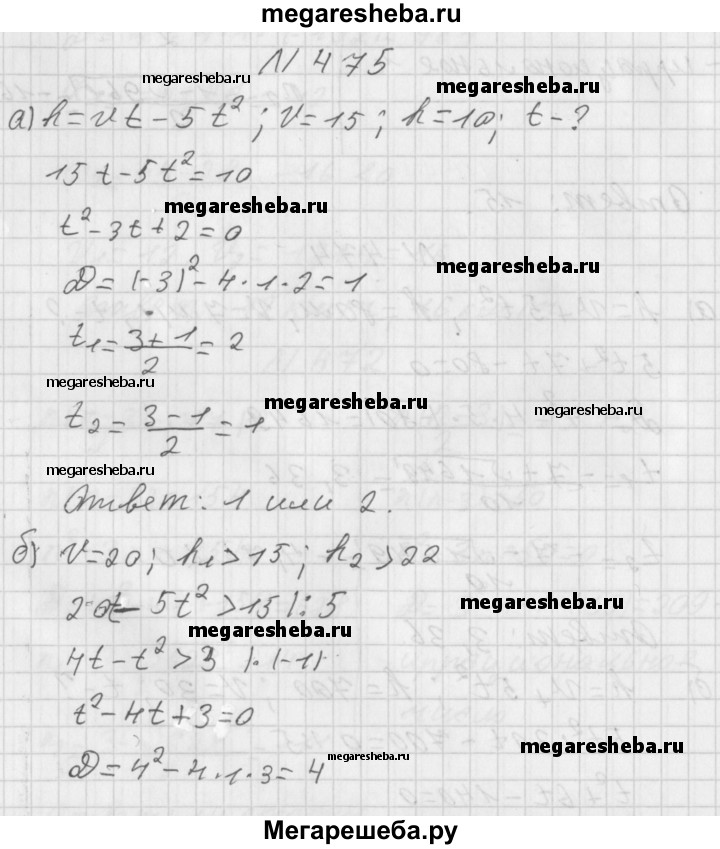 megaresheba.ru
N 475
megaresheba.ru
megaresheba.ru
а) h = vt - 5t²; v = 15; h = 10; t - ?
15t - 5t² = 10
megaresheba.ru
t² - 3t + 2 = 0
megaresheba.ru
D = (-3)² - 4·1·2 = 1
t₁ = (3+1)/2 = 2
megaresheba.ru
megaresheba.ru
megaresheba.ru
t₂ = (3-1)/2 = 1
megaresheba.ru
Ответ: 1 или 2.
б) v = 20; h₁ > 15; h₂ > 22
20t - 5t² > 15 |: 5
megaresheba.ru
megaresheba.ru
4t - t² > 3 |·(-1)
t² - 4t + 3 = 0
megaresheba.ru
megaresheba.ru
D = 4² - 4·1·3 = 4
Мегарешеба.ру